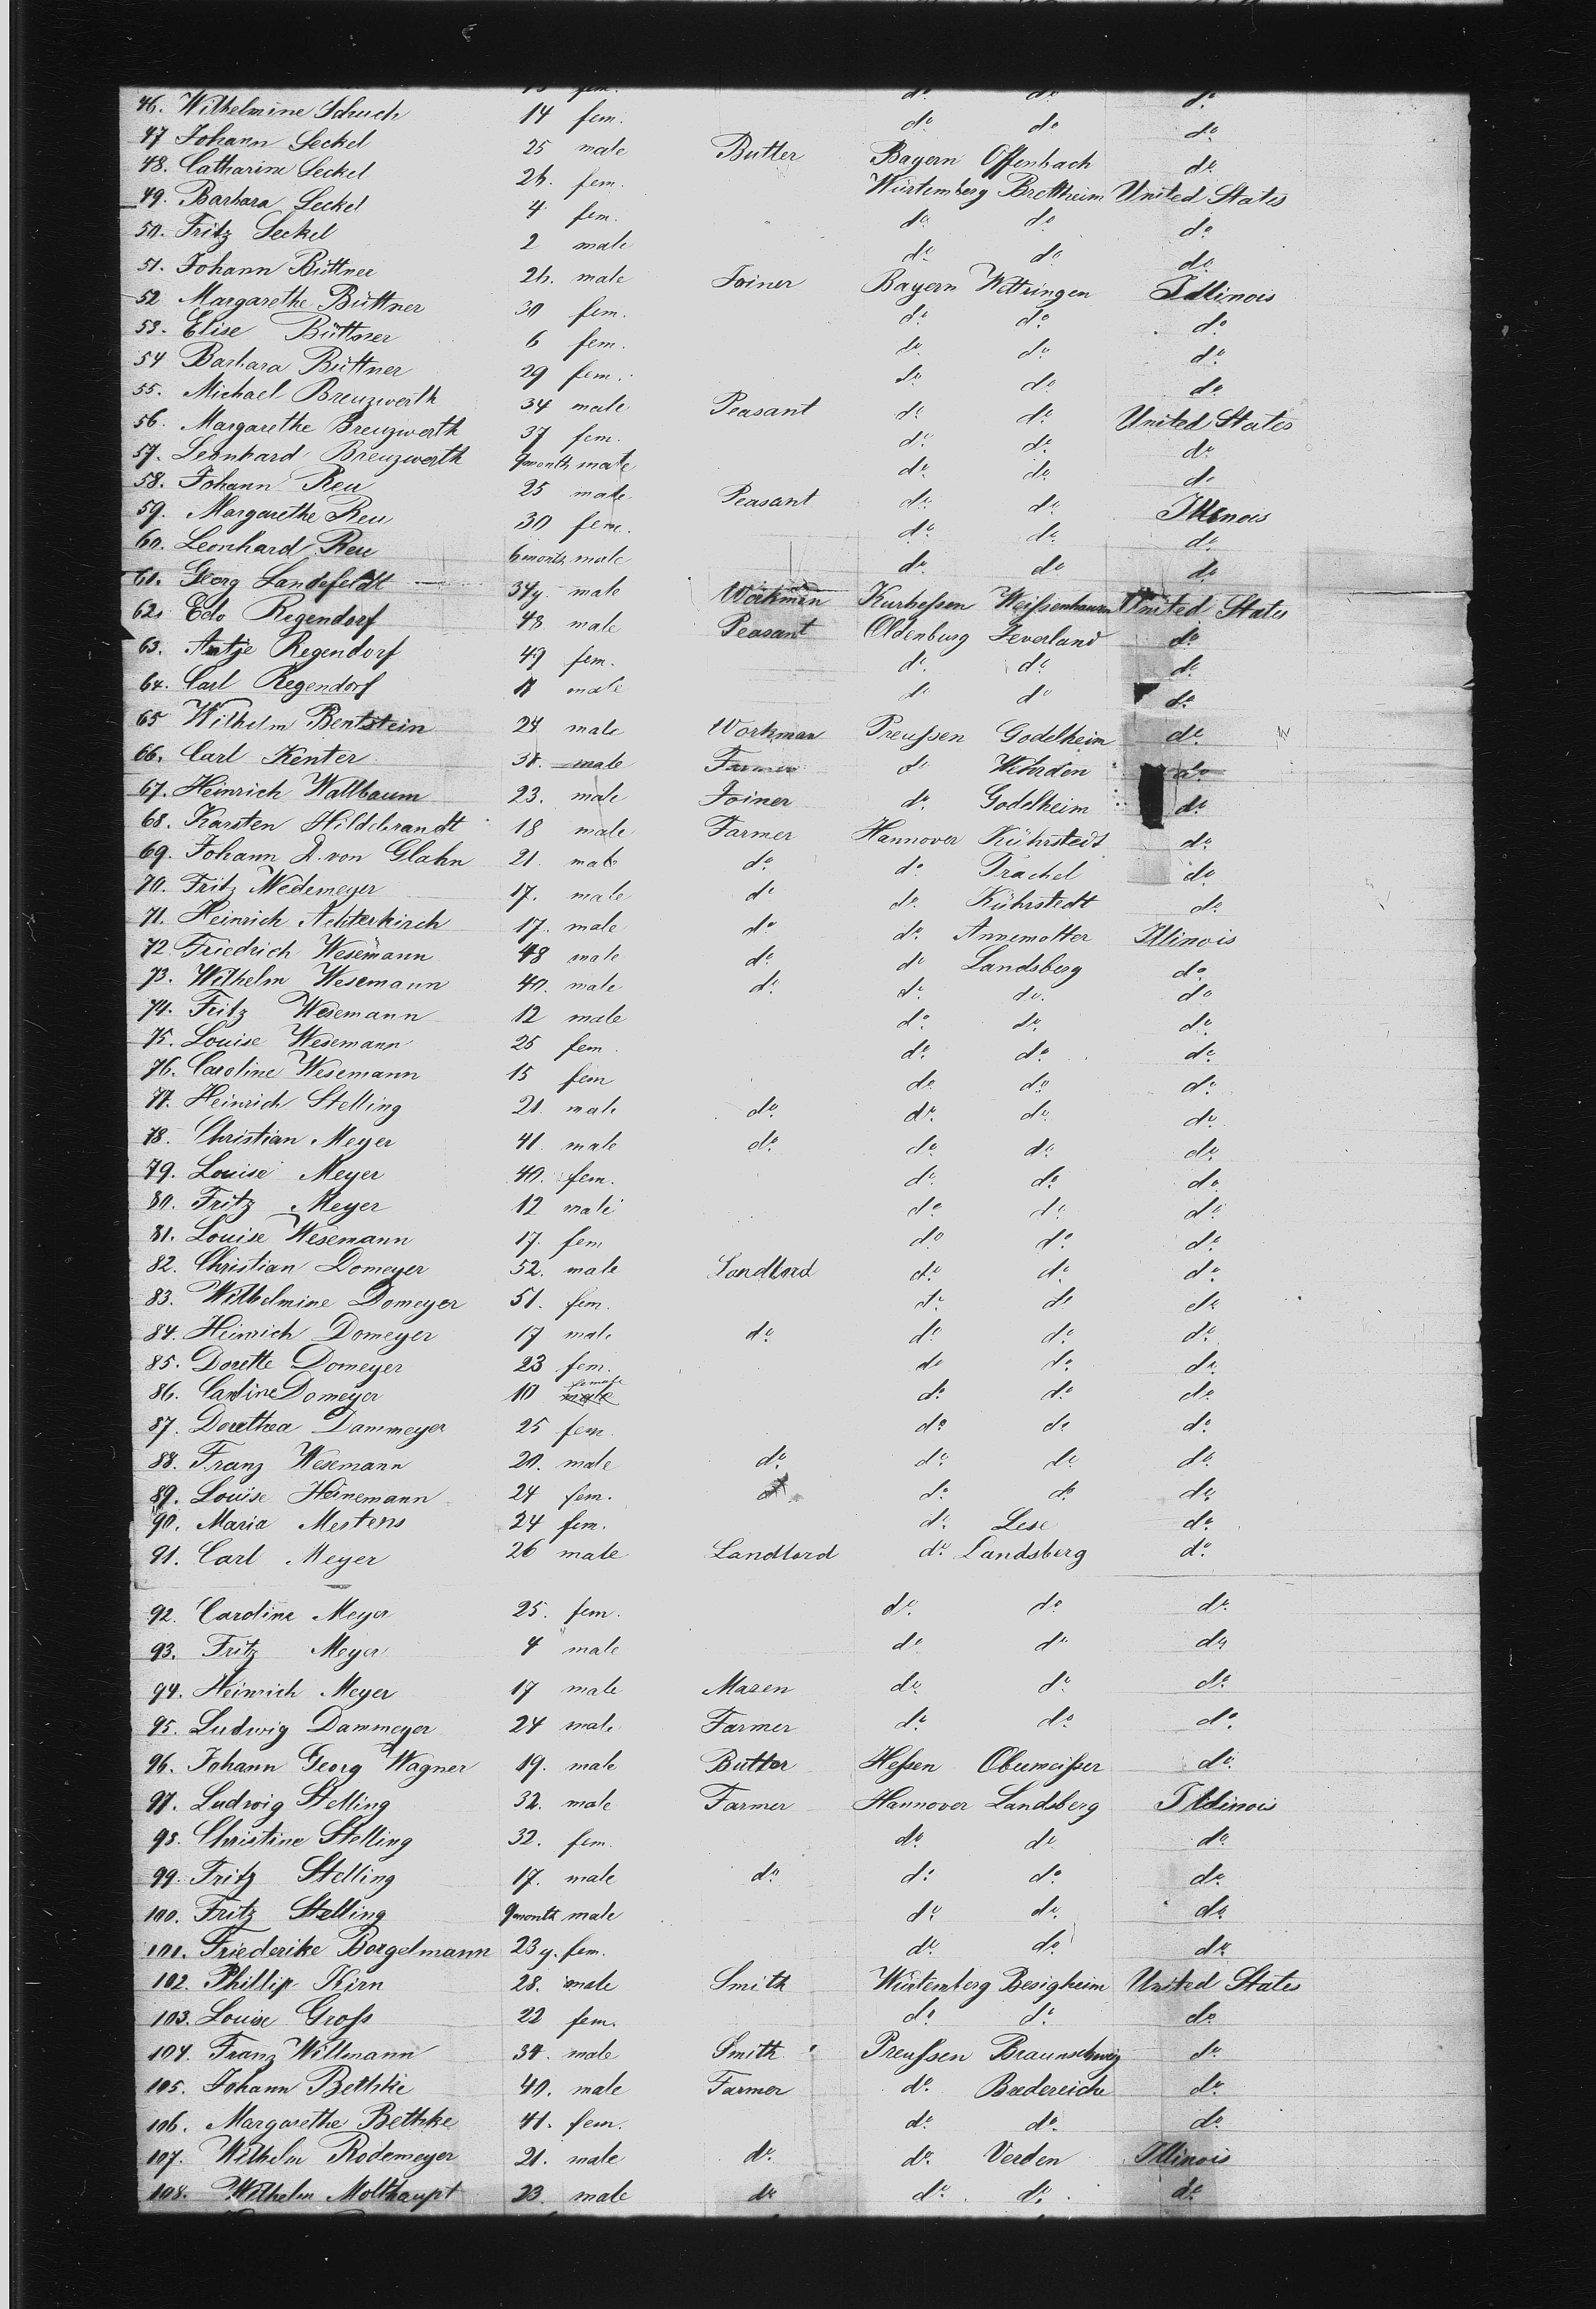 46. Wilhelmine Schuch 14 fem. do do do
47 Johann Seckel 25 male Butler Bayern Offenbach do
48. Catharine Seckel 26. fem. Würtemberg Brettheim United States
49. Barbara Seckel 4 fem. do do do
50. Fritz Seckel 2 male do do do
51. Johann Büttner 26. male Joiner Bayern Wettringen Illinois
52 Margarethe Büttner 30 fem. do do do
53. Elise Büttner 6 fem. do do do
54 Barbara Büttner 29 fem. do do do
55. Michael Breuzwerth 34 male Peasant do do United States
56. Margarethe Breuzwerth 37 fem. do do do
57. Leonhard Breuzwerth 9 month male do do do
58. Johann Reu 25 male Peasant do do Illinois
59. Margarethe Reu 30 fem. do do do
60. Leonhard Reu 6 month male do do do
61. Georg Landefeldt 34 y. male Workman Kurhessen Weissenhausen United States
62. Edo Regendorf 48 male Peasant Oldenburg Jeverland do
63. Antje Regendorf 49 fem. do do do
64. Carl Regendorf male do do do
65 Wilhelm Bentstein 24 male Workman Preussen Godelheim do
66. Carl Kenter male Farmer do Wehrden do
67. Heinrich Wallbaum 23. male Joiner do Godelheim do
68. Karsten Hildebrandt 18 male Farmer Hannover Kührstedt do
69. Johann A. von Glahn 21. male do do Trachel do
70. Fritz Wedemeyer 17. male do do Kührstedt do
71. Heinrich Achterkirch 17. male do do Annemolter Illinois
72 Friedrich Wesemann 48 male do do Landsberg do
73. Wilhelm Wesemann 40. male do do do do
74. Fritz Wesemann 12 male do do do
75. Louise Wesemann 25 fem. do do do
76. Caroline Wesemann 15 fem do do do
77. Heinrich Stelling 21. male do do do do
78. Christian Meyer 41 male do do do do
79. Louise Meyer 40. fem. do do do
80. Fritz Meyer 12 male do do do
81. Louise Wesemann 17. fem do do do
82. Christian Domeyer 52. male Landlord do do do
83. Wilhelmine Domeyer 51. fem. do do do
84. Heinrich Domeyer 17 male do do do do
85. Dorette Domeyer 23 fem. do do do
86. Carline Domeyer 10 male female do do do
87. Dorethea Dammeyer 25 fem. do do do
88. Franz Wesemann 20. male do do do do
89. Louise Heinemann 24 fem. do do do
90. Maria Mertens 24 fem. do Lese do
91. Carl Meyer 26 male Landlord do Landsberg do
92. Caroline Meyer 25. fem. do do do
93. Fritz Meyer 4 male do do do
94. Heinrich Meyer 17 male Mazen do do do
95. Ludwig Dammeyer 24 male Farmer do do do
96. Johann Georg Wagner 19. male Butler Hessen Obumeisser do
97. Ludwig Stelling 32. male Farmer Hannover Landsberg Illinois
98. Christine Stelling 32. fem. do do do
99. Fritz Stelling 17. male do do do do
100. Fritz Stelling 9 month male do do do
101. Friederike Borgelmann 23 y. fem. do do do
102. Phillip Kirn 28. male Smith Würtemberg Besigheim United States
103. Louise Gross 22 fem. do do do
104. Franz Willmann 34. male Smith Preussen Braunschweig do
105. Johann Bethke 40. male Farmer do Bredereiche do
106. Margarethe Bethke 41. fem. do do do
107. Wilhelm Rodemeyer 21. male do do Verden Illinois
108. Wilhelm Molthaupt 23. male do do do do